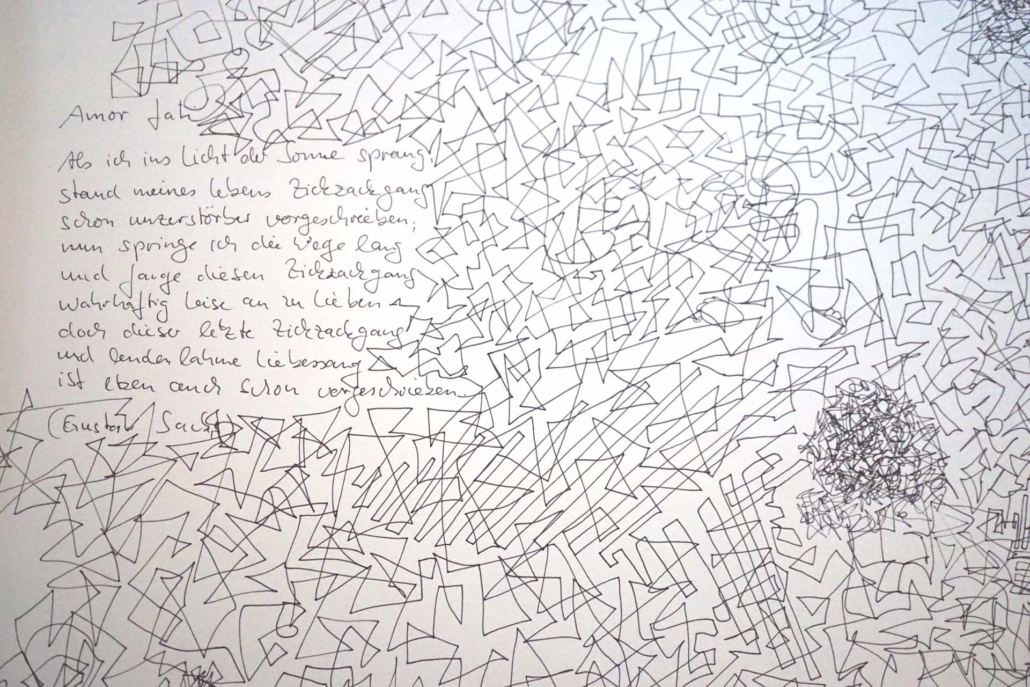 Amor fati
Als ich ins Licht der Sonne sprang,
stand meines Lebens Zickzackgang
schon unzerstörbar vorgeschrieben;
nun springe ich die Wege lang
und fange diesen Zickzackgang
wahrhaftig leise an zu lieben -
doch dieser letzte Zickzackgang
und lendenlahme Liebessang
ist eben auch schon vorgeschrieben.
(Gustav Sack)